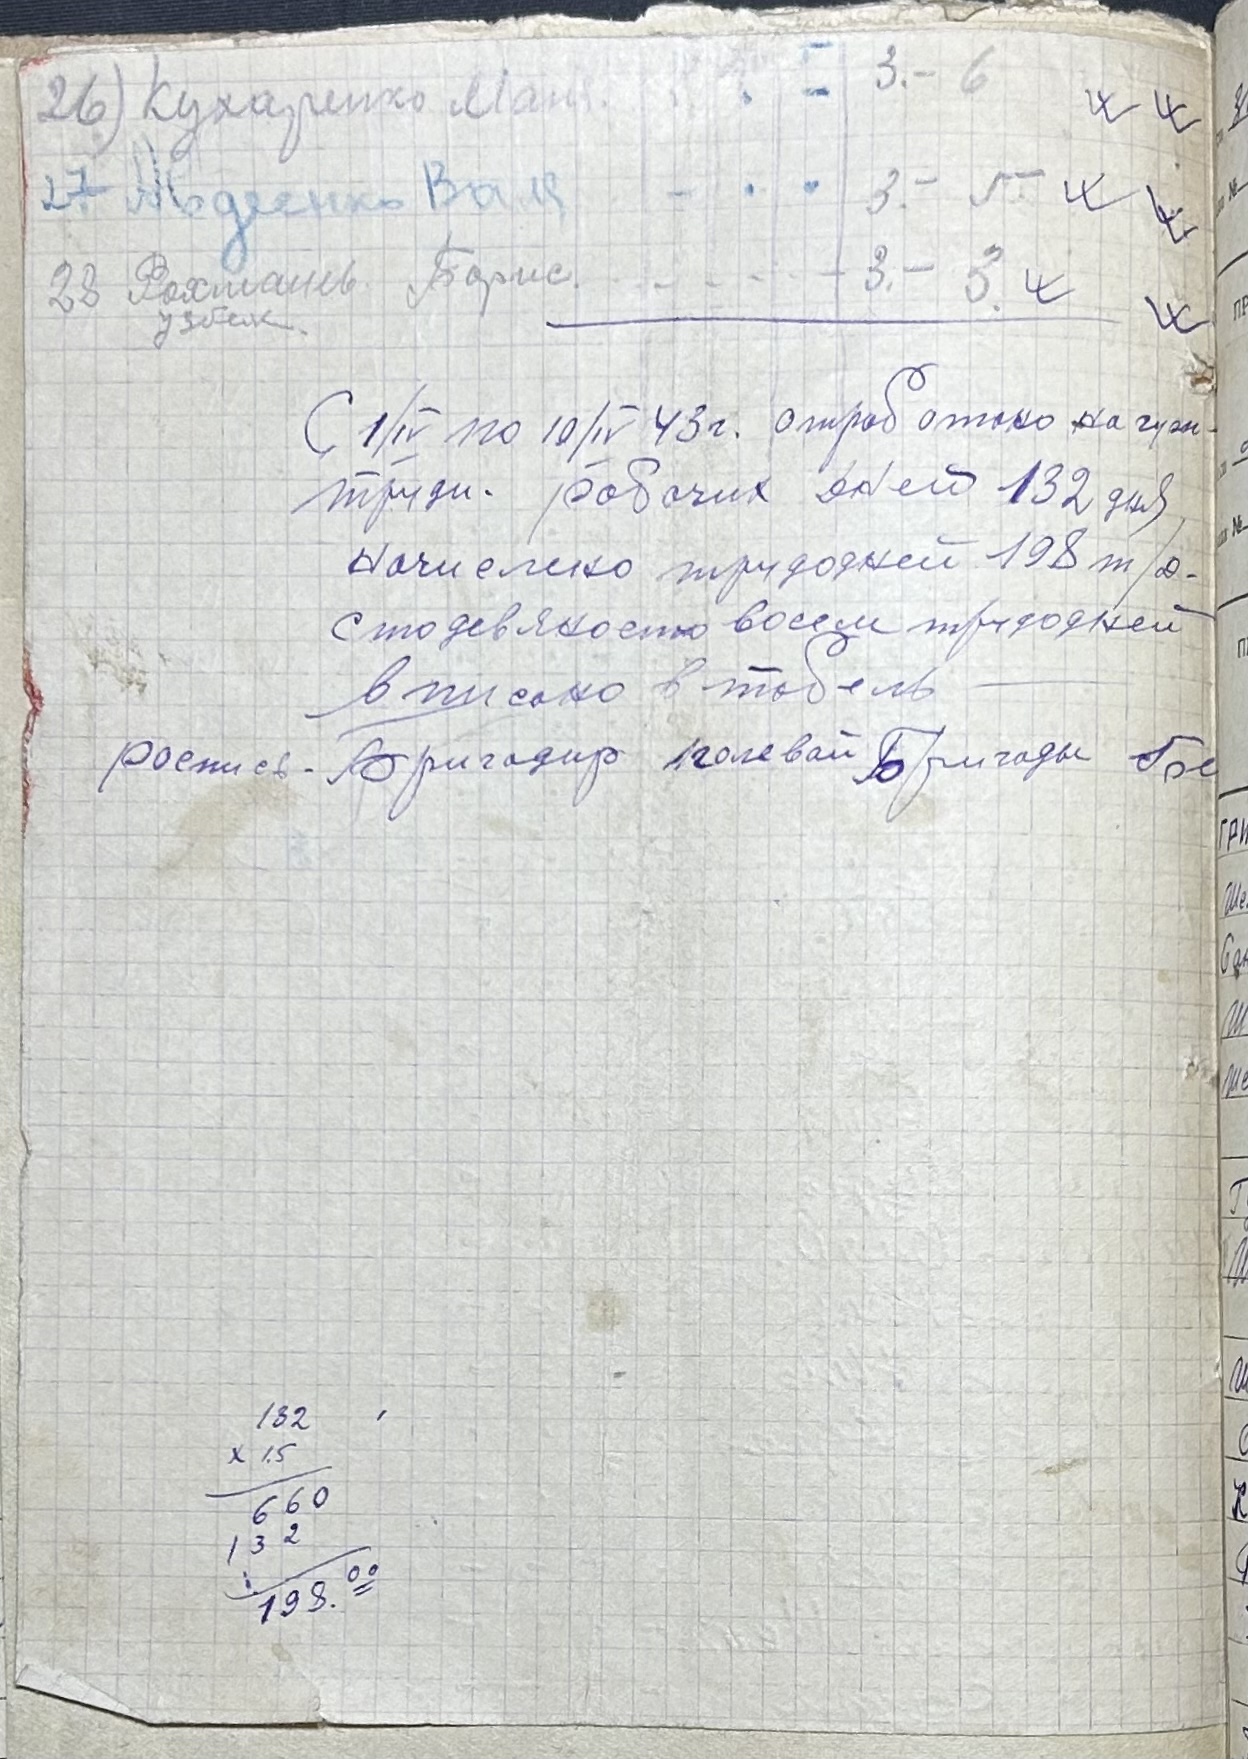 26) Кухаренко Маня. 3.- 6
27 Вал 3.- 5-
28 Рахмань. Борис. 3.- 3.
узбек.
С 1/IV по 10/IV 43 г. отработано на
труди. рабочих дней 132 дня
начислено трудодней 198 т/д.
стодевяносто восем трудодней
вписано в табель
роспись. Бригадир полевай Бригады
132
x 1.5
660
132
198.00